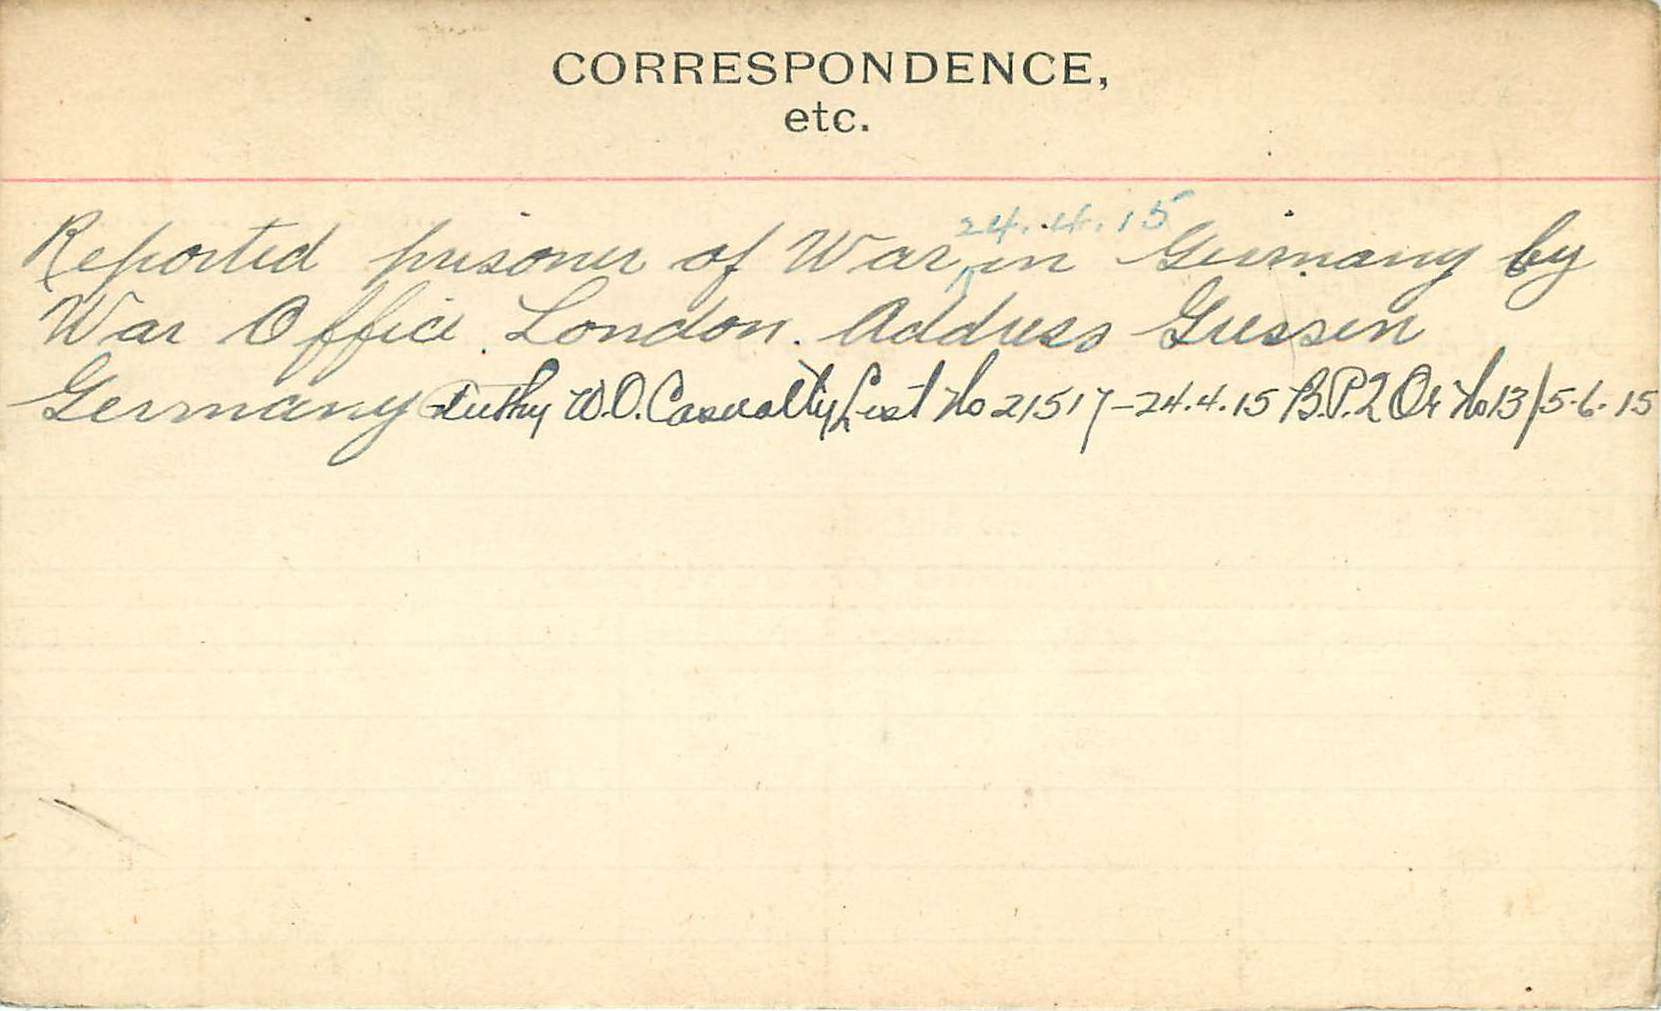 CORRESPONDENCE,
etc.
24.4.15
Reported prisoner of War in Germany by
War Office London. Address Giessen
Germany Authy W.O. Casualty List No 21517-24.4.15 B.P.2 Or No 13/5.6.15